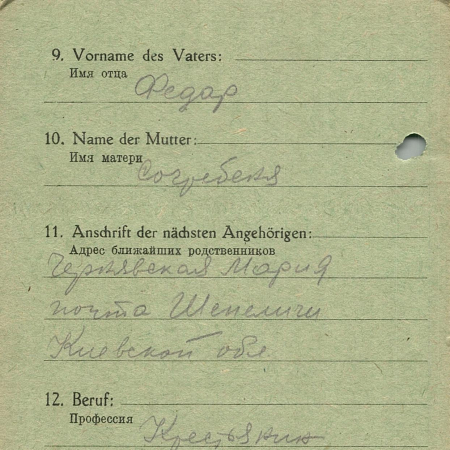 9. Vorname des Vaters:
Имя отца
Федар
10. Name der Mutter:
Имя матери
Согребеня
11. Anschrift der nächsten Angehörigen:
Адрес ближайших родственников
Чернявская Мария
почта Шепеличи
Киевской обл
12. Beruf:
Профессия
Крестьянин